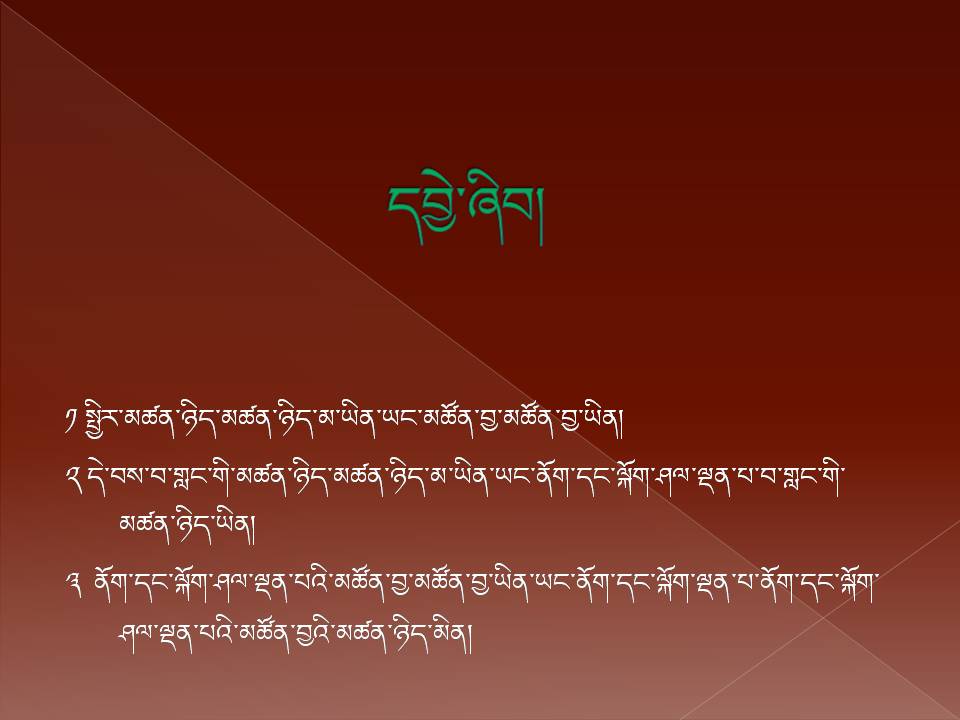 དབྱེ་ཞིབ།
༡ སྤྱིར་མཚན་ཉིད་མཚན་ཉིད་མ་ཡིན་ཡང་མཚོན་བྱ་མཚོན་བྱ་ཡིན།
༢ དེ་བས་བ་གླང་གི་མཚན་ཉིད་མཚན་ཉིད་མ་ཡིན་ཡང་ནོག་དང་ལྐོག་ཤལ་ལྡན་པ་བ་གླང་གི་
མཚན་ཉིད་ཡིན།
༣ ནོག་དང་ལྐོག་ཤལ་ལྡན་པའི་མཚོན་བྱ་མཚོན་བྱ་ཡིན་ཡང་ནོག་དང་ལྐོག་ལྡན་པ་ནོག་དང་ལྐོག་
ཤལ་ལྡན་པའི་མཚོན་བྱའི་མཚན་ཉིད་མིན།